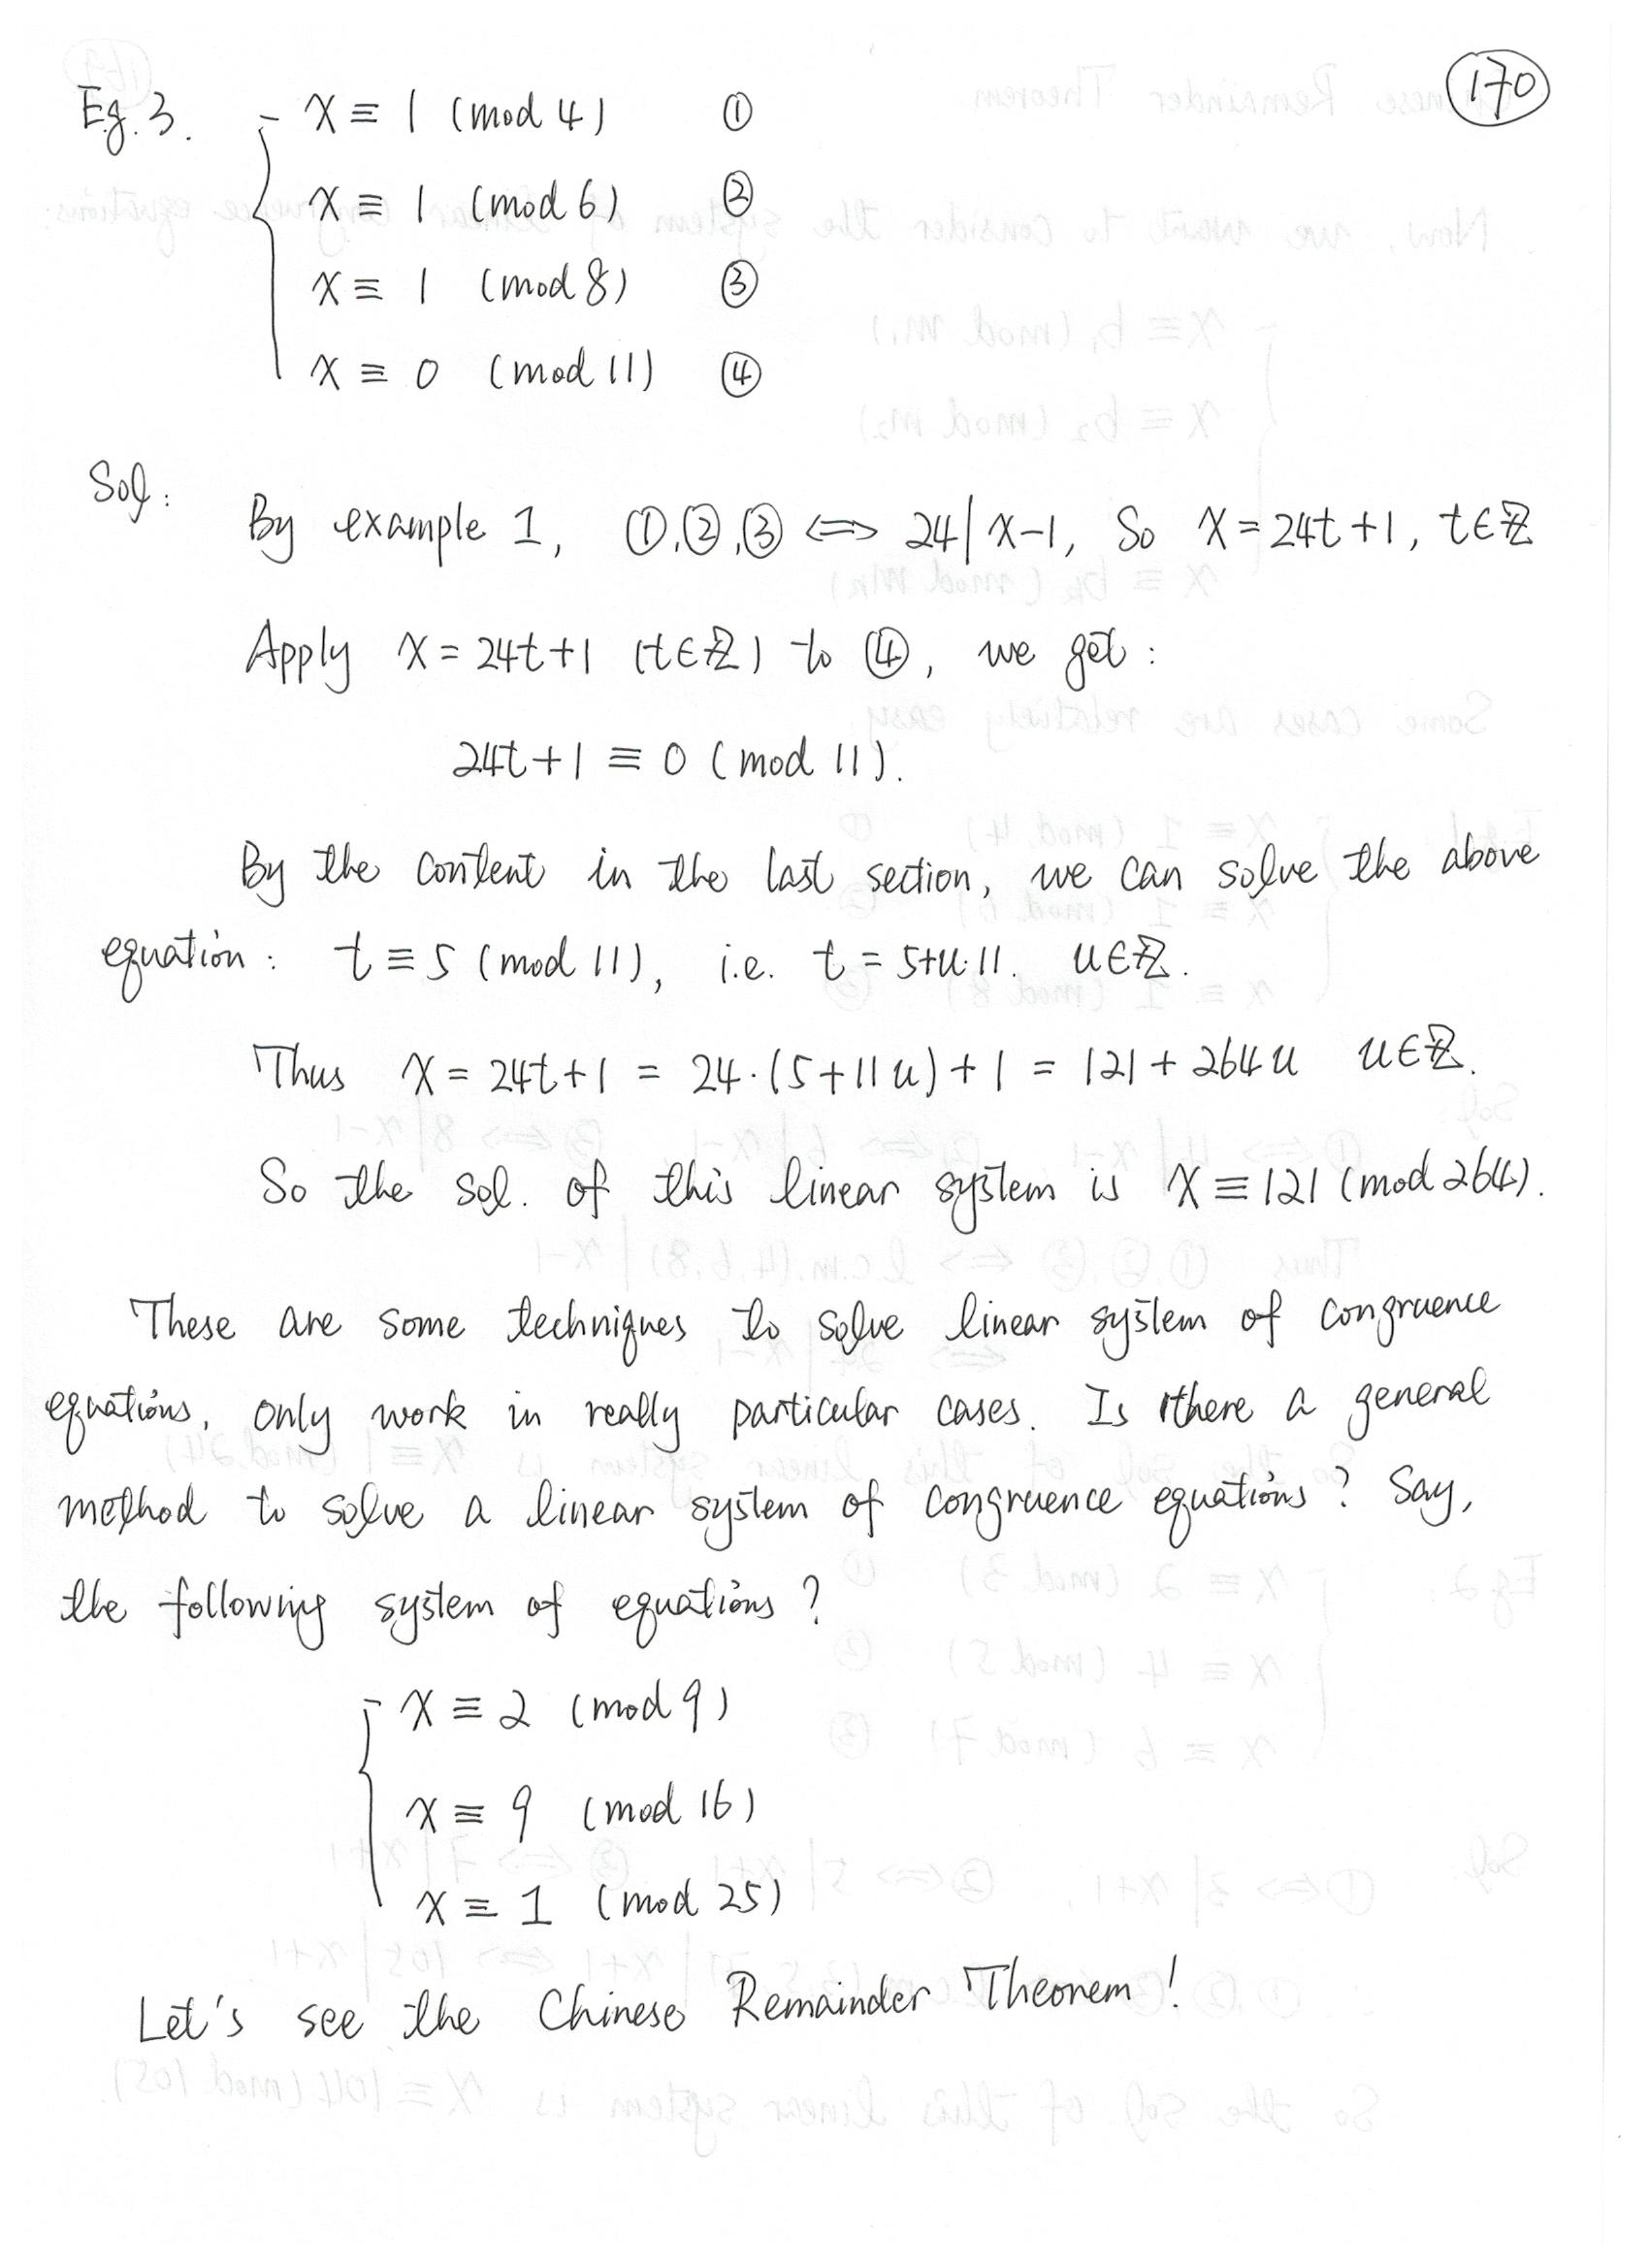 170
Eg. 3. x ≡ 1 (mod 4) ①
x ≡ 1 (mod 6) ②
x ≡ 1 (mod 8) ③
x ≡ 0 (mod 11) ④
Sol:
By example 1, ①,②,③ ⟺ 24 | x-1, So x = 24t+1, t∈ℤ
Apply x = 24t+1 (t∈ℤ) to ④, we get:
24t+1 ≡ 0 (mod 11).
By the content in the last section, we can solve the above
equation: t ≡ 5 (mod 11), i.e. t = 5+u·11. u∈ℤ.
Thus x = 24t+1 = 24·(5+11u)+1 = 121+264u u∈ℤ.
So the sol. of this linear system is x ≡ 121 (mod 264).
These are some techniques to solve linear system of congruence
equations, only work in really particular cases. Is there a general
method to solve a linear system of congruence equations? Say,
the following system of equations?
x ≡ 2 (mod 9)
x ≡ 9 (mod 16)
x ≡ 1 (mod 25)
Let's see the Chinese Remainder Theorem!